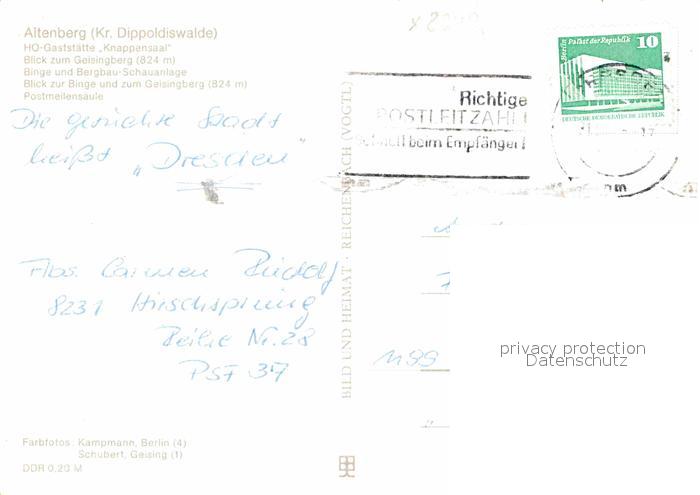 Altenberg (Kr. Dippoldiswalde)
HO-Gaststätte „Knappensaal"
Blick zum Geisingberg (824 m)
Binge und Bergbau-Schauanlage
Blick zur Binge und zum Geisingberg (824 m)
Postmeilensäule
Die gesuchte Stadt
heißt „Dresden"
Abs. Carmen Rudolf
8231 Hirschsprung
Reihe Nr. 28
PSF 37
Farbfotos: Kampmann, Berlin (4)
Schubert, Geising (1)
DDR 0,20 M
BILD UND HEIMAT · REICHENBACH (VOGTL)
Richtige
POSTLEITZAHL
beim Empfänger
Berlin Palast der Republik
10
DEUTSCHE DEMOKRATISCHE REPUBLIK
privacy protection
Datenschutz